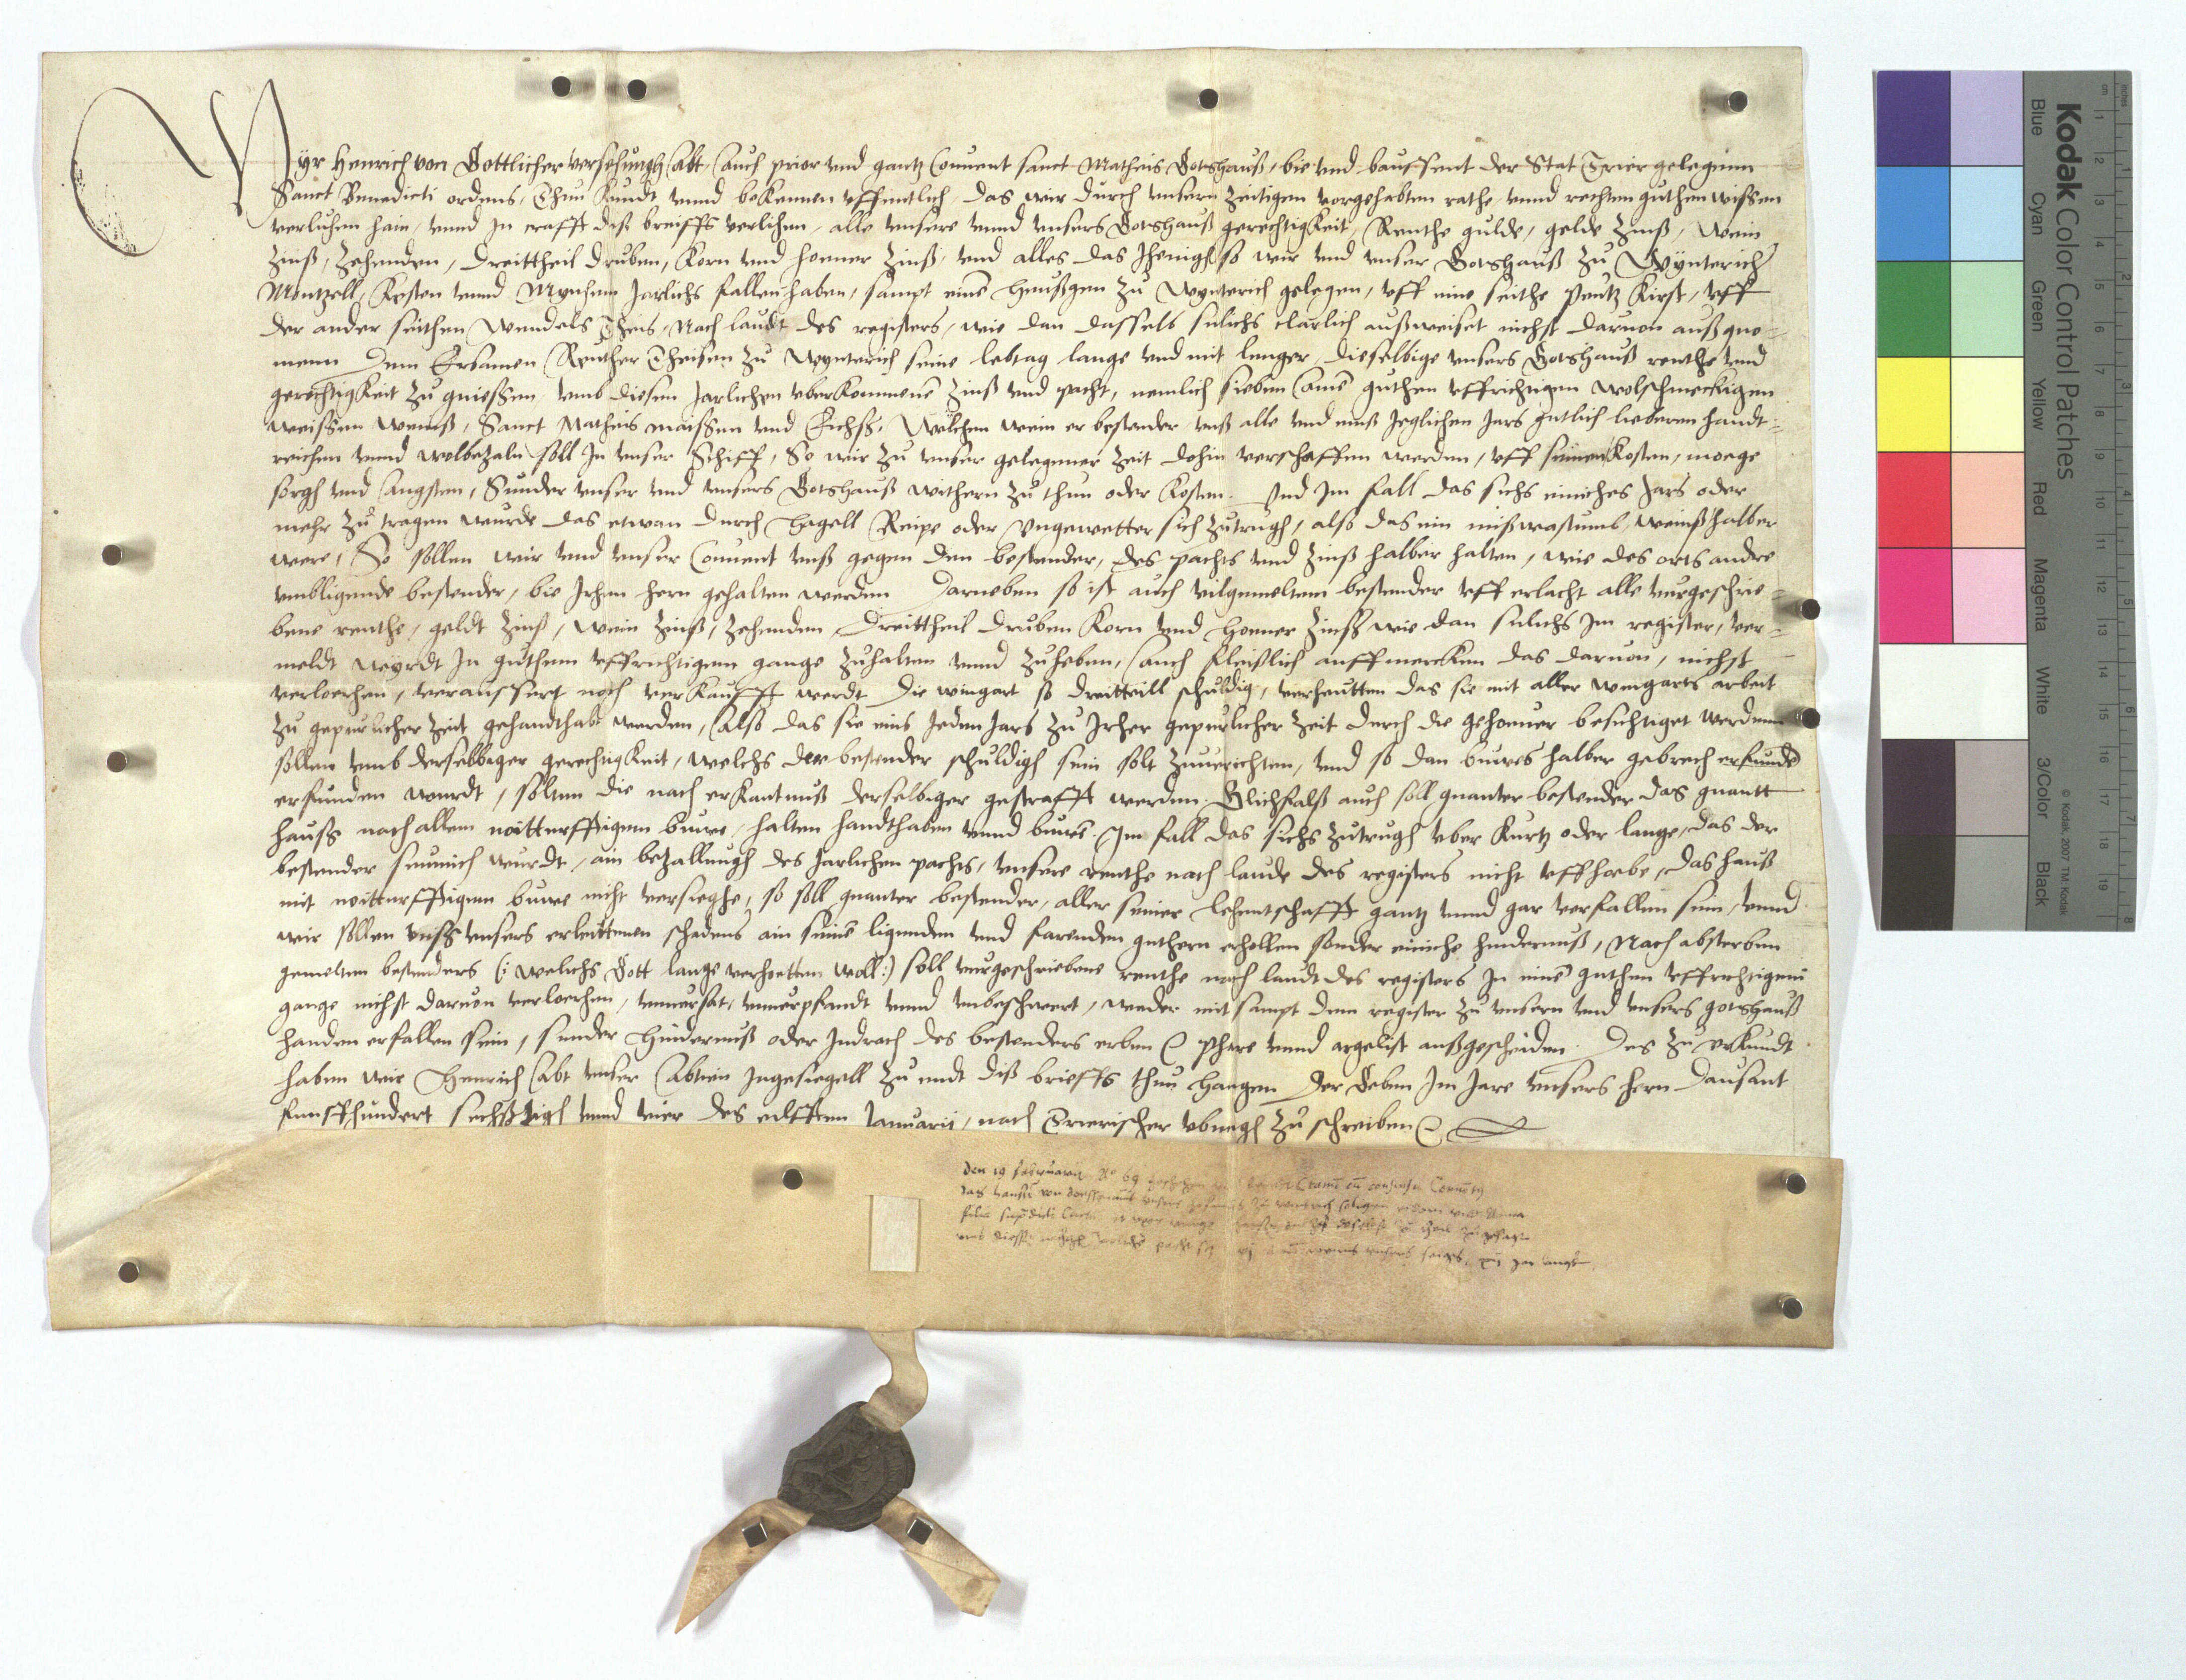 Wyr Henrich von Gottlicher versehungh Abt, auch prior vnd gantz Conuent sanct Matheis Gotshauß, bie vnd baussent der Stat Trier gelegenn
Sanct Benedicti ordens, Thun Kundt vnnd bekennen vffentlich das wir durch vnsern zeitigen vorgehabten rathe vnnd rechten guthen wissen
verluhen hain, vnnd In crafft diß breiffs verlihen, alle vnsere vnnd vnsers Gotshauß gerechtigkeit, Renthe gulde, gelde Zinß, Wein
Zinß, Zehenden, Dreittheil druben, Korn vnd honner Zinß, vnd alles das Jhenigh so wir vnd vnser Gotshauß zu Wynterich
Montzell, Kesten vnnd Mynhem Jarlichs fallen haben, sampt eine heußgen zu Wynterich gelegen, vff eine seithe Peutz Kirst, vff
der ander seithen Wendels Theis, Nach laudt des registers, wie dan dassels sulichs clarlich außweiset nichst daruon außgno-
menn Dem Ersamen Reuther Theisen zu Wynterich seine lebtag lange vnd nit lenger, dieselbige vnsers Gotshauß renthe vnd
gerechtigkeit zu gniessen vmb diesen Jarlichen vberkommene Zinß vnd pacht, nemlich sieben Ame guthen vffrichtigen wolschmeckigen
weissen weinß, Sanct Matheis maissen vnd Eichß, Wilchen wein er bestender vnß alle vnd eines Jeglichen Jars gutlich lieberen handt-
reichen vnnd wolbezaln soll In vnser Schiff, So wir zu vnser gelegener Zeit dohin verschaffen werden, vff seinen Kosten, moege
sorgh vnd Angsten, Sunder vnser vnd vnsers Gotshauß withern zu thun oder Kosten. Vnd Im fall das sichs einiches Jars oder
mehr zu tragen wurde das etwan durch Hagell Reipe oder Vngewetter sich zutrugh, also das ein mißwastumb, weinß halber
were, So sollen wir vnd vnser Conuent vnß gegen den bestender, des pachts vnd Zinß halber halten, wie des orts andre
vmbligende bestender, bie Irhen hern gehalten werden Darneben so ist auch vilgemeltem bestender vff erlacht alle vurgeschrie-
bene renthe, geldt Zinß, Wein Zinß, Zehenden, Dreittheil druben Korn vnd honner Zinß wie dan sulichs Im register, ver-
meldt Wyrdt In guthem vffrichtigem gange zuhalten vnnd zuheben, Auch fleißlich auffmercken das daruon, nichst
verloerhen, veraussert noch verkaufft werdt Die wingart so dreitteill schuldig, verheutten das sie mit aller wingarts arbeit
zu gepurlicher Zeit gehandthabt werden, Also das sie eins Jeden Jars zu Irher gepurlicher Zeit durch die gehoeuer besichtiget werdenn
sollen vmb derselbiger gerechtigkeit, welchs der bestender schuldigh sein solt zuuerichten, vnd so dan buwes halber gebrech erfunde
erfunden wurdt, solten die nach erkantnuß derselbiger gestrafft werden. Glichfalß auch soll gnanter bestender das gnantt
hauß nach allem noitturfftigem buwe, halten handthaben vnnd buwen. Im fall das sichs zutrugh vber Kurtz oder lange, das der
bestender seumich wurdt, ain bezallungh des Jarlichen pachts, vnsere renthe nach laude des registers nicht vffhoebe, das hauß
mit noitturfftigem buwe nicht versieghe, so soll gnanter bestender, aller seiner Lehentschafft gantz vnnd gar verfallen sein, vnnd
wir sollen vnß vnsers erleittenen schadens ain seine ligenden vnd farenden guthern erhollen sonder einiche hindernuß, Nach absterben
gemelten bestenders (: welichs Gott lange verhoetten woll:) soll vurgeschriebene renthe nach laudt des registers In eine guthen vffrichtigenn
gange nichst daruon verloerhen, vnuersat, vnuerpfandt vnnd vnbeschwert, weder mit sampt dem register zu vnsern vnd vnsers gotshauß
handen erfallen sein, sunder hindernuß oder Indrach des bestenders erben phare vnnd argelist außgescheiden. Des zu vrkundt
haben wir Henrich Abt vnser Abtien Ingesiegell zu endt diß brieffs thun hangen Der Geben Im Jare vnsers hern Dausant
funffhundert sechßzigh vnnd vier des eilfften Januarii, nach Trierischer vbungh zu schreiben
den 19 februarii Ao 69